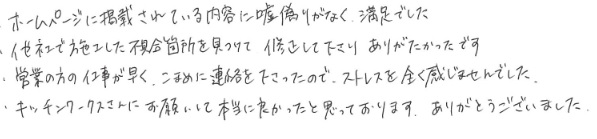 ・ホームページに掲載されている内容に嘘偽りがなく、満足でした
・他社で施工した不具合箇所を見つけて 修正して下さり ありがたかったです
・営業の方の仕事が早く、こまめに連絡を下さったので、ストレスを全く感じませんでした。
・キッチンワークスさんにお願いして本当に良かったと思っております。ありがとうございました。